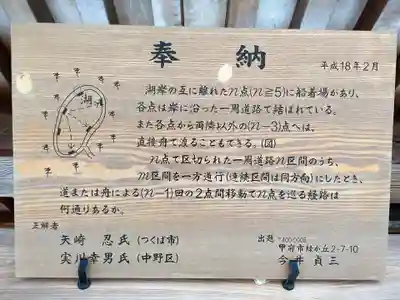 奉納
平成18年2月
湖岸の互に離れたn点(n≧5)に船着場があり、
各点は岸に沿った一周道路で結ばれている。
また各点から両隣以外の(n-3)点へは、
直接舟で渡ることもできる。(図)
n点で区切られた一周道路n区間のうち、
m区間を一方通行(連続区間は同方向)にしたとき、
道または舟による(n-1)回の2点間移動でn点を巡る経路は
何通りあるか。
湖
正解者
矢崎 忍氏(つくば市)
実川幸男氏(中野区)
出題 〒400-0006
甲府市緑が丘2-7-10
今井貞三